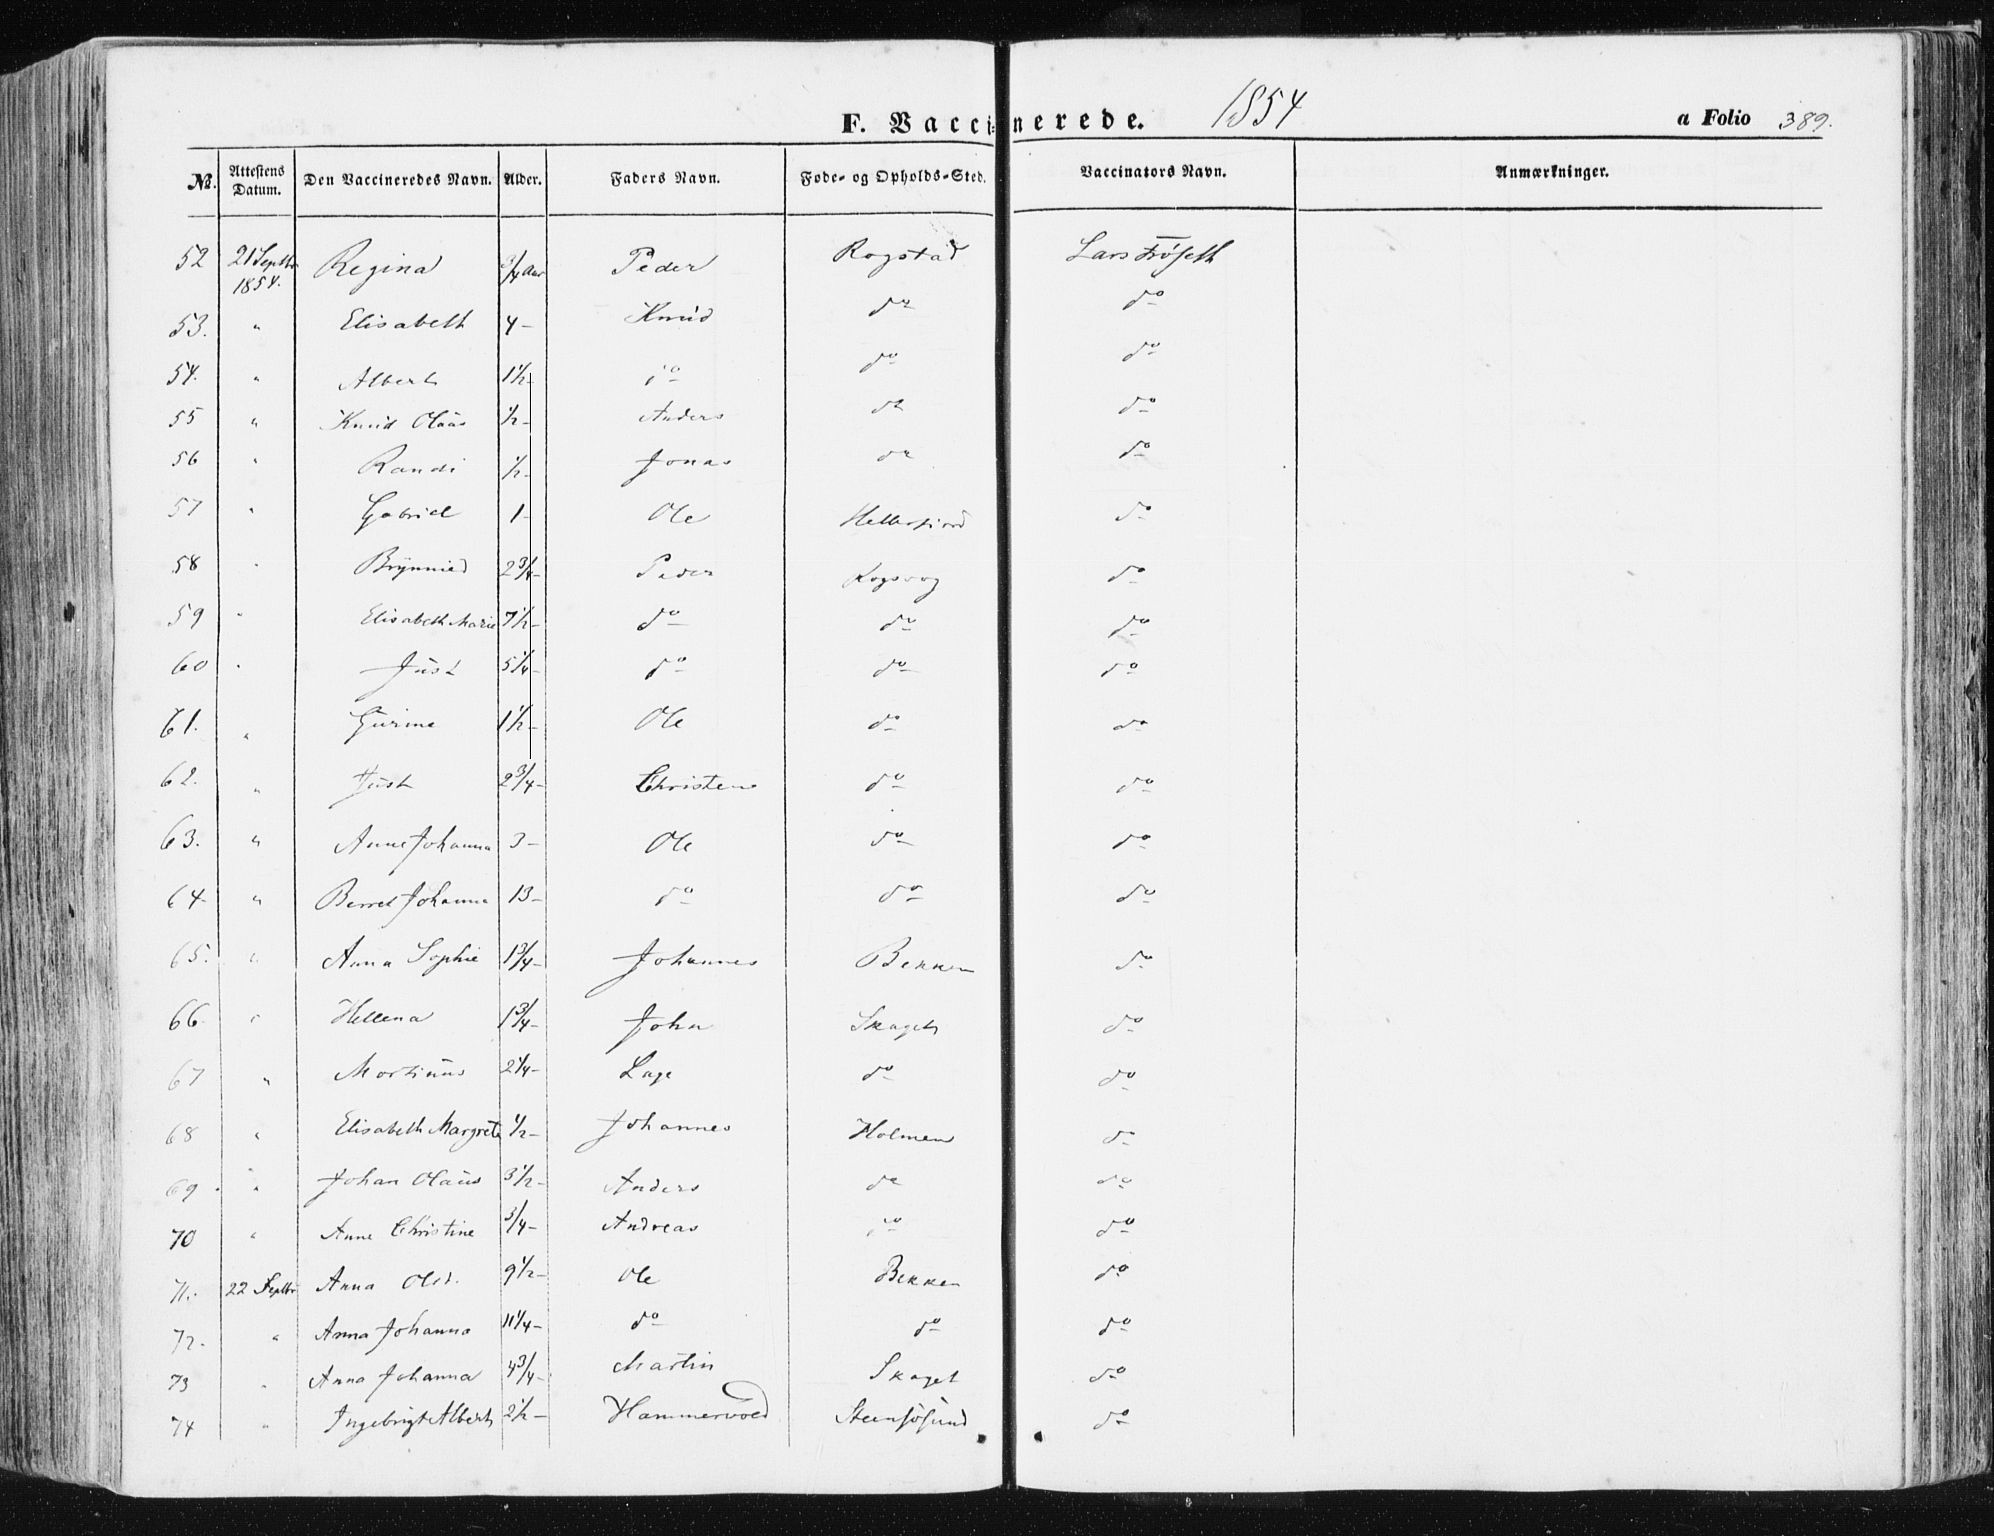 F. Vaccinerede. 1854 a Folio 389.
№. Attestens Datum. Den Vaccineredes Navn. Alder. Faders Navn. Føde- og Opholds-Sted. Vaccinators Navn. Anmærkninger.
52 21 Septbr 1854. Regina 3/4 Aar Peder Rogstad Lars Fröseth
53. " Elisabeth 4 - Knud do do
54. " Albert 1 1/2 - do do do
55 " Knud Olaus 1/2 - Anders do do
56 " Randi 1/2 - Jonas do do
57 " Gabriel 1 - Ole do
58 " 2 3/4 - Peder do
59 " Elisabeth Marie 7 1/2 - do do do
60 " Just 5 1/4 - do do do
61. " Gurine 1 1/2 - Ole do do
62. " Just 2 3/4 - Christen do do
63. " Anne Johanna 3 - Ole do do
64 " Berret Johanna 13 - do do do
65. " Anna Sophie 1 3/4 - Johannes Bekken do
66 " Hellena 1 3/4 - John Skaget do
67 " Martinus 2 1/4 - Lage do do
68 " Elisabeth Margrete 1/2 - Johannes Holmen do
69 " Johan Olaus 3 1/2 - Anders do do
70 " Anne Christine 3/4 - Andreas do do
71. 22 Septbr Anna Olsd. 9 1/2 - Ole Bekken do
72. " Anna Johanna 11 1/4 - do do do
73 " Anna Johanna 4 3/4 - Martin Skaget do
74 " Ingebrigt Albert 2 1/2 - Hammervold Steensösund do